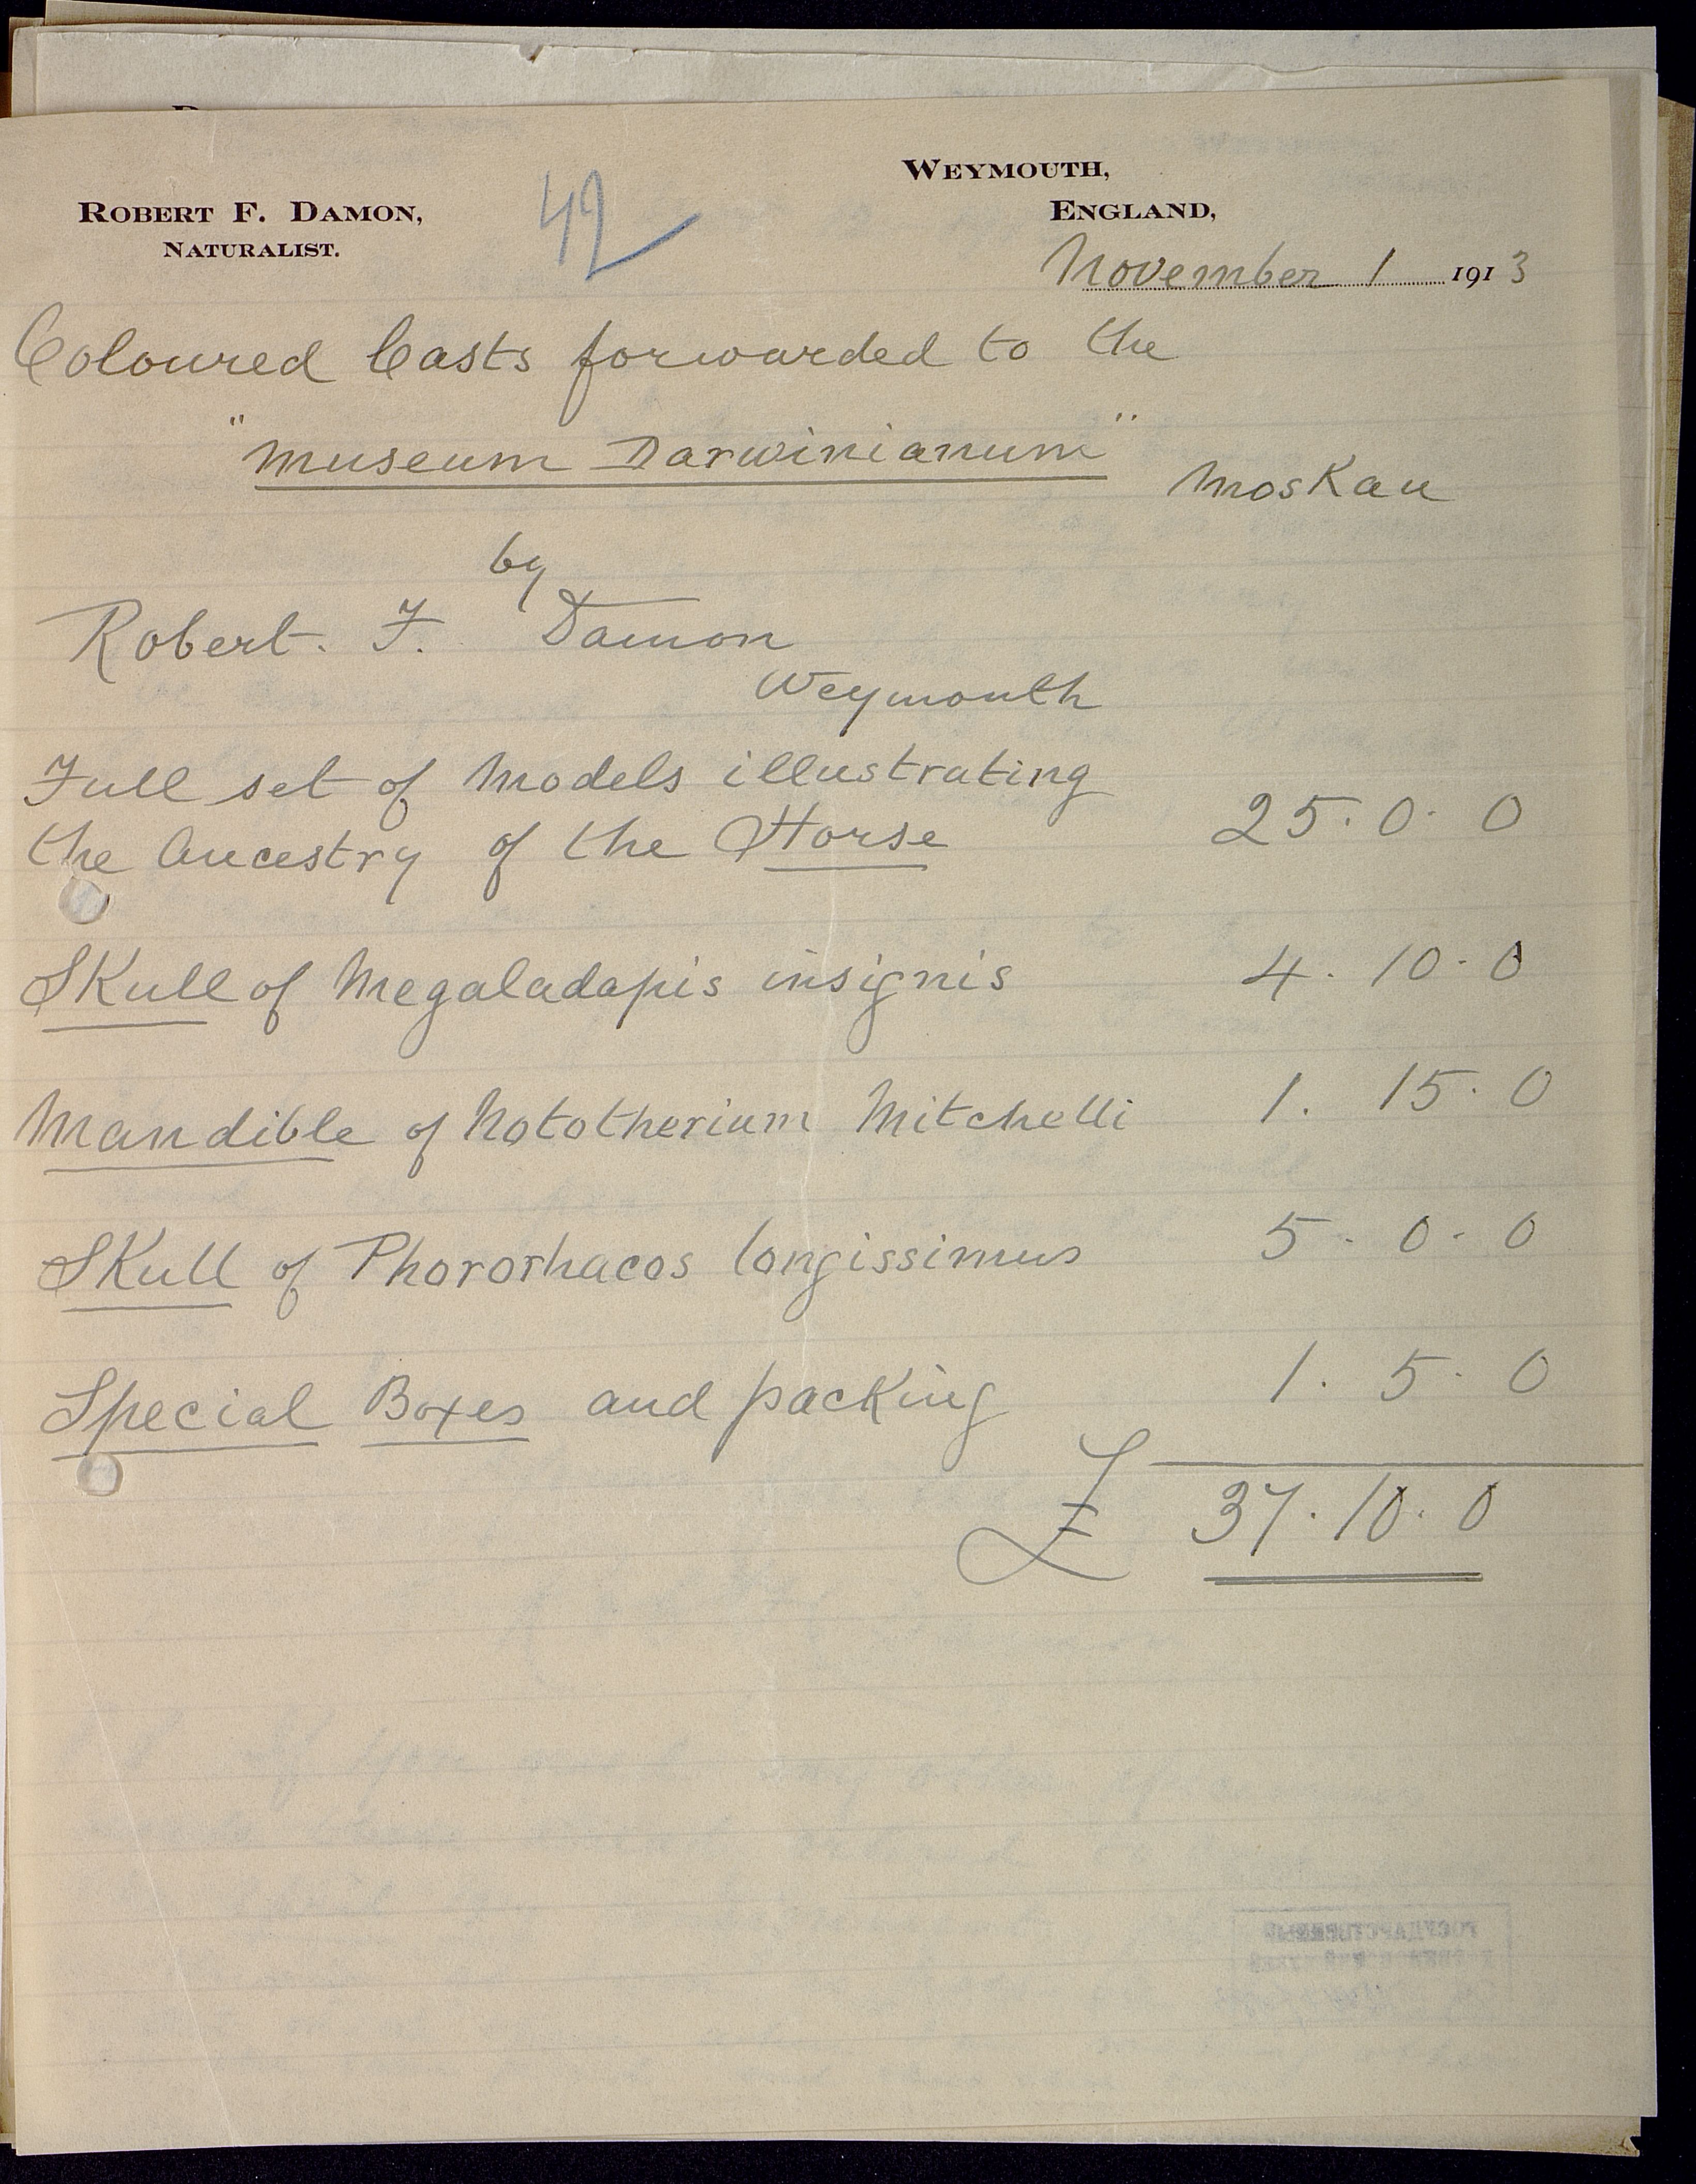 WEYMOUTH,
ENGLAND,
ROBERT F. DAMON,
NATURALIST.
42
November 1 1913
Coloured Casts forwarded to the
"Museum Darwinianum" Moskau
by
Robert. F. Damon
Weymouth
Full set of Models illustrating
the Ancestry of the Horse 25. 0. 0
Skull of Megaladapis insignis 4. 10. 0
Mandible of Nototherium Mitchelli 1. 15. 0
Skull of Phororhacos longissimus 5. 0. 0
Special Boxes and packing 1. 5. 0
£ 37. 10. 0